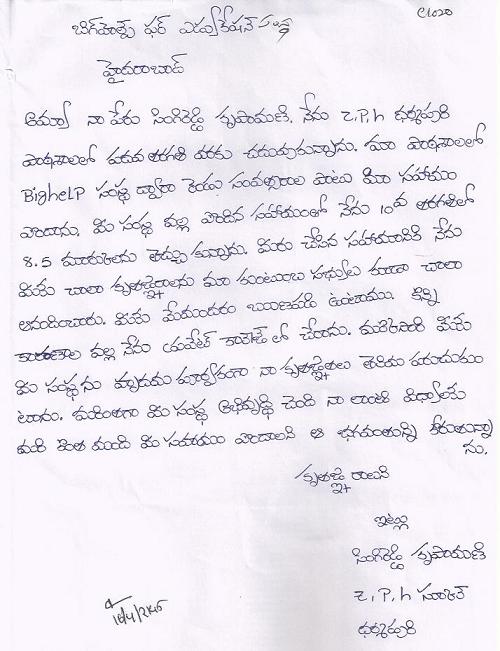 C1020
బిగ్‌హెల్ప్ ఫర్ ఎడ్యుకేషన్ సంస్థ
హైదరాబాద్
అమ్మా నా పేరు సింగిరెడ్డి కృపామణి. నేను z.P.h ధర్మపురి
పాఠశాలలో పదవ తరగతి వరకు చదువుకున్నాను. మా పాఠశాలలో
BigheLP సంస్థ ద్వారా రెండు సంవత్సరాల పాటు మీ సహాయం
పొందాను. మీ సంస్థ వల్ల పొందిన సహాయంతో నేను 10వ తరగతిలో
8.5 మార్కులను తెచ్చుకున్నాను. మీరు చేసిన సహాయానికి నేను
మీకు చాలా కృతజ్ఞరాలను మా కుటుంబ సభ్యులు కూడా చాలా
ఆనందించారు. మీకు మేమందరం ఋణపడి ఉంటాము. కొన్ని
కారణాల వల్ల నేను ప్రైవేట్ కాలేజ్ లో చేరాను. మరొకసారి మీకు
మీ సంస్థను హృదయ పూర్వకంగా నా కృతజ్ఞతలు తెలియ పరుచుకుం
టాను. మరింతగా మీ సంస్థ అభివృద్ధి చెంది నా లాంటి విద్యార్థులకు
మరి కొంత మంది మీ సహాయం పొందాలని ఆ భగవంతున్ని కోరుతున్నా
ను.
కృతజ్ఞ రాలని
ఇట్లు
సింగిరెడ్డి కృపామణి
z.P.h స్కూల్
ధర్మపురి